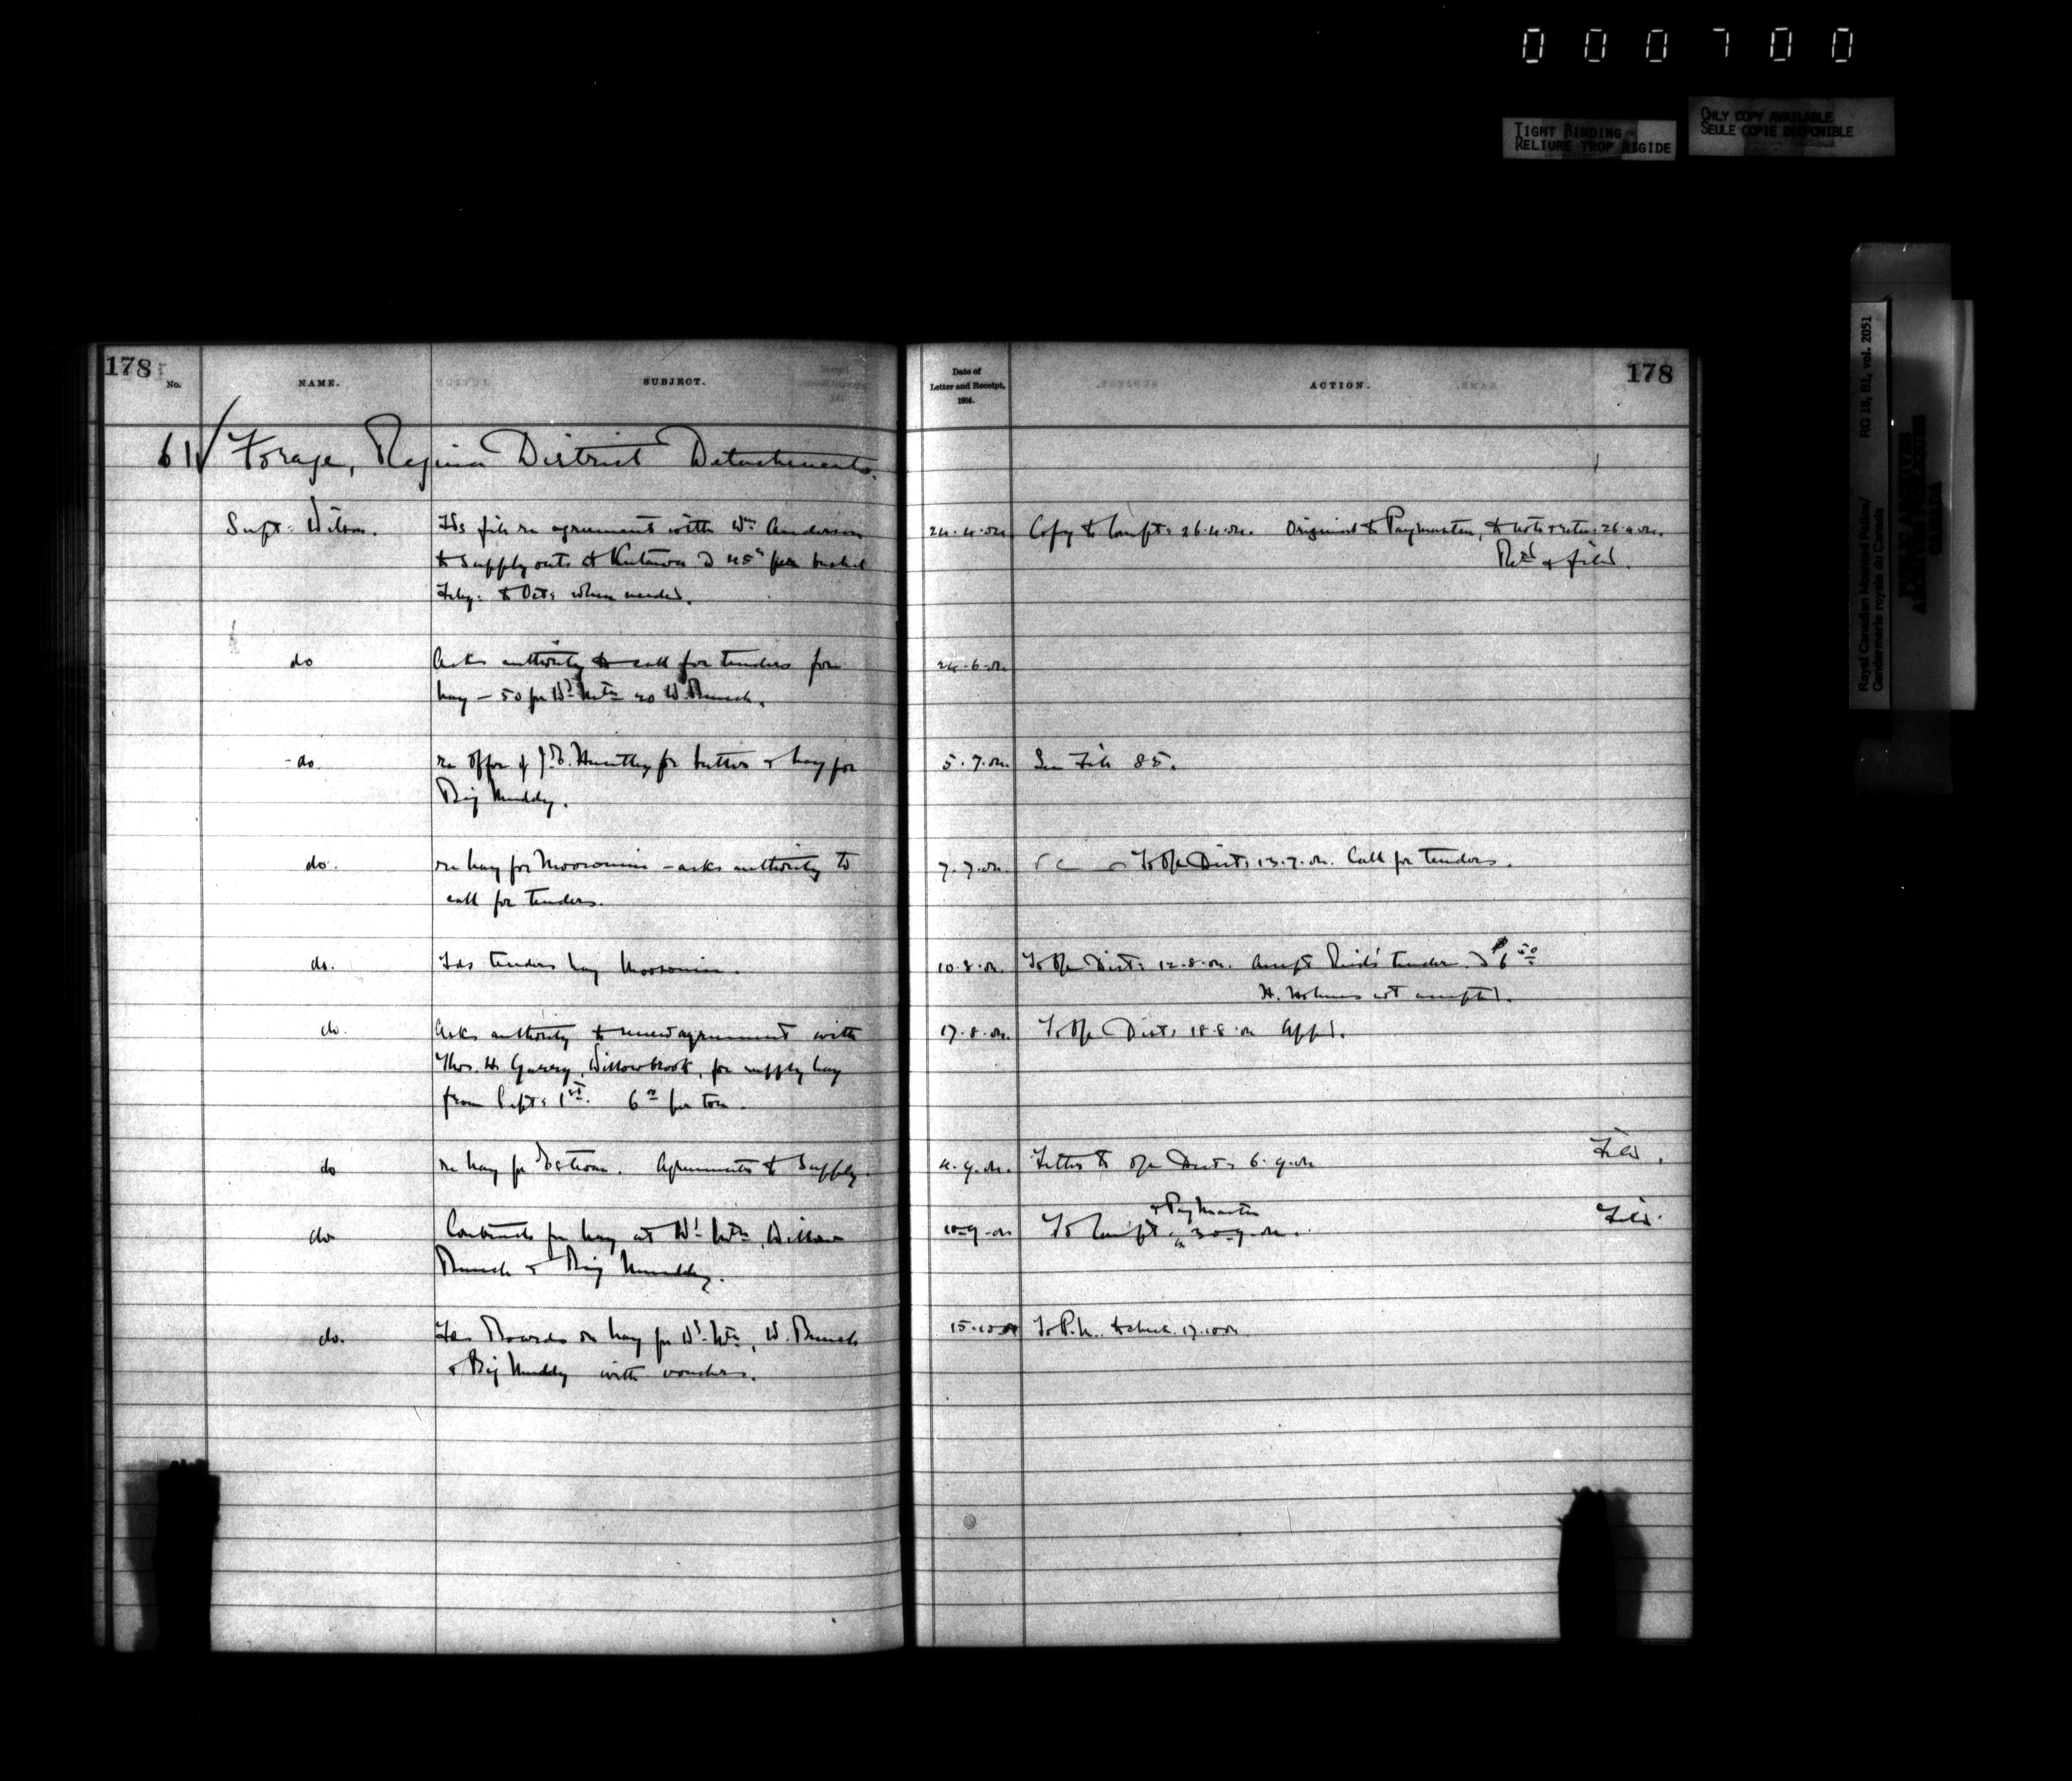 000700
TIGHT BINDING
RELIURE TROP RIGIDE
ONLY COPY AVAILABLE
SEULE COPIE DISPONIBLE
Royal Canadian Mounted Police/ RG 18, B1, vol. 2051
Gendarmerie royale du Canada
PUBLIC ARCHIVES
ARCHIVES PUBLIQUES
CANADA
178 No. NAME. SUBJECT. Date of Letter and Receipt, 1904. ACTION. 178
61 Forage, Regina District Detachments.
Supt: Wilson. Fds file re agreement with Wm Anderson 24.4.04. Copy to Compt: 26.4.04. Original to Paymaster, to note & retn. 26.4.04.
to supply oats at Kutawa @ 45¢ per bushel Retd & filed.
Feby: to Oct: when needed.
do Asks authority to call for tenders for 24.6.04
hay – 50 for Wd Mtn 20 W. Bunch.
do re offer of Huntley for butter & hay for 5.7.04. See File 85.
Big Muddy.
do. re hay for Moosomin – asks authority to 7.7.04. To Off Dist: 13.7.04. Call for tenders.
call for tenders.
do. Fds tenders hay Moosomin. 10.8.04. To Off Dist: 12.8.04. Accept Reid's tender @ $6 50
H. Holmes not accepted.
do. Asks authority to renew agreement with 17.8.04. To Off Dist: 18.8.04 Appd.
Thos. H. Garry, Willowbrook, for supply hay
from Sept: 1st. 6 per ton.
do re hay for Estevan. Agreements to supply. 4.9.04. Letter to Off Dist: 6.9.04 Filed.
do Contracts for hay at Wd Mtn, Willow 10-9-04 To Compt & Paymaster 30-9-04. Filed.
Bunch & Big Muddy.
do. Fds Boards on hay for Wd. Mtn, W. Bunch 15.10.04 To P.M. to check 17.10.04.
& Big Muddy with vouchers.